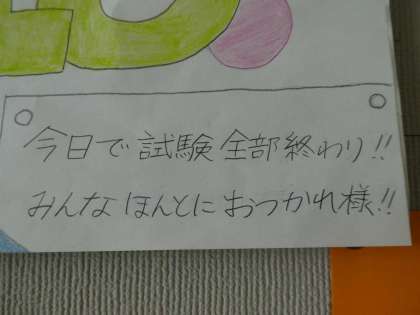 今日で試験全部終わり!!
みんなほんとにおつかれ様!!